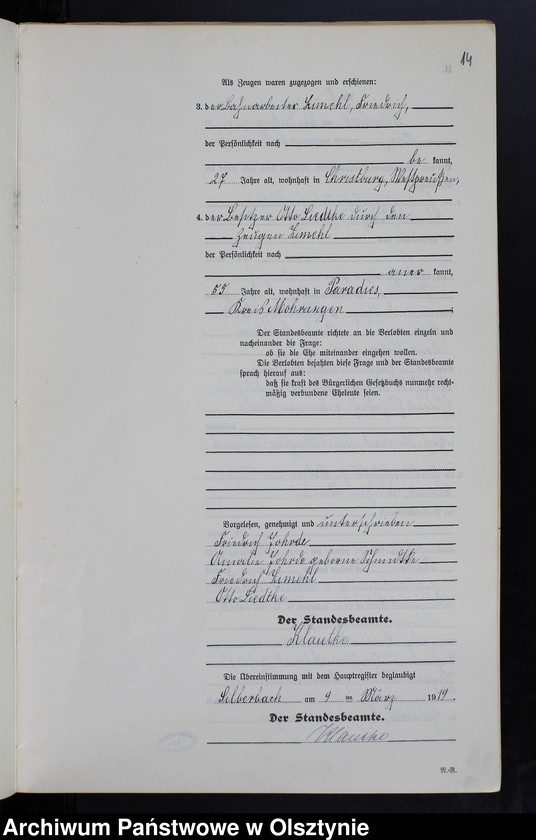 14
Als Zeugen waren zugezogen und erschienen:
3. der Bahnarbeiter Friedrich,
der Persönlichkeit nach
be kannt,
27 Jahre alt, wohnhaft in Christburg, Westpreußen,
4. der Besitzer Otto Liedtke durch den
Zeugen
der Persönlichkeit nach
aner kannt,
55 Jahre alt, wohnhaft in Paradies,
Kreis Mohrungen
Der Standesbeamte richtete an die Verlobten einzeln und
nacheinander die Frage:
ob sie die Ehe miteinander eingehen wollen.
Die Verlobten bejahten diese Frage und der Standesbeamte
sprach hierauf aus:
daß sie kraft des Bürgerlichen Gesetzbuchs nunmehr recht-
mäßig verbundene Eheleute seien.
Vorgelesen, genehmigt und unterschrieben
Friedrich
Amalie geborne
Friedrich
Otto Liedtke
Der Standesbeamte.
Klautke
Die Übereinstimmung mit dem Hauptregister beglaubigt
Silberbach am 9 ten März 1914.
Der Standesbeamte.
Klautke
N.-R.
Archiwum Państwowe w Olsztynie